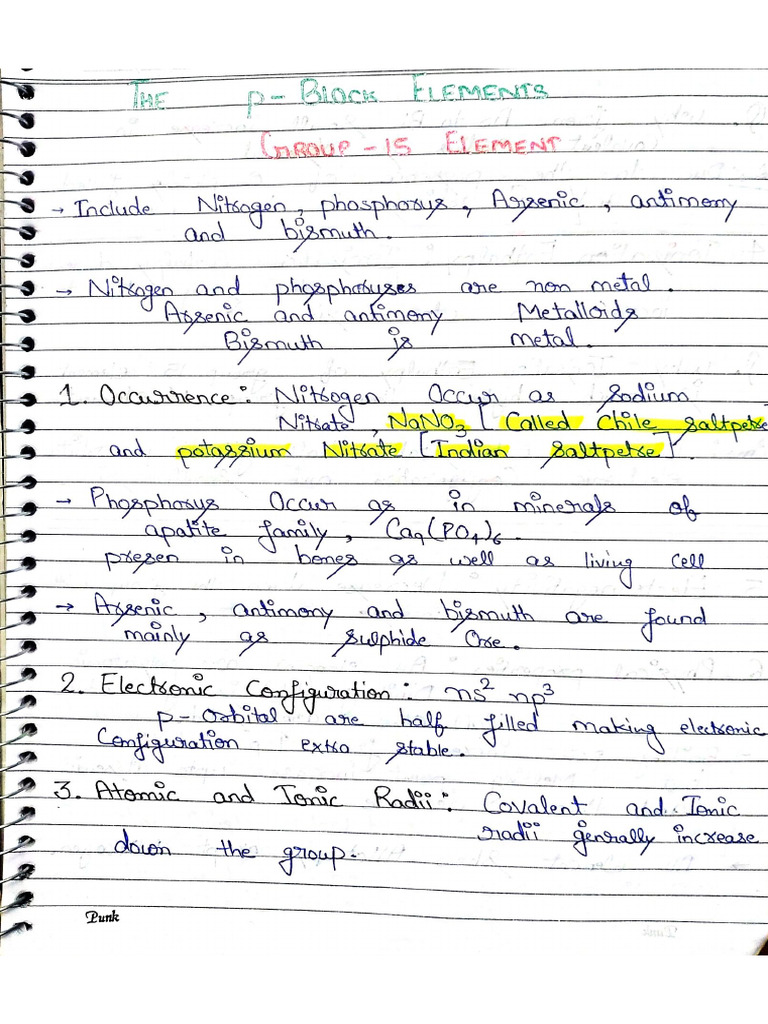 THE p-BLOCK ELEMENTS
GROUP-15 ELEMENT
→ Include Nitrogen, phosphorus, Arsenic, antimony
and bismuth.
→ Nitrogen and phosphoruses are non metal.
Arsenic and antimony Metalloids
Bismuth is metal.
1. Occurrence: Nitrogen Occur as Sodium
Nitrate, NaNO₃ [Called Chile Saltpetre
and potassium Nitrate [Indian Saltpetre].
→ Phosphorus Occur as in minerals of
apatite family, Ca₉(PO₄)₆.
presen in bones as well as living cell
→ Arsenic, antimony and bismuth are found
mainly as sulphide Ore.
2. Electronic Configuration: ns² np³
p-orbital are half filled making electronic
Configuration extra stable.
3. Atomic and Ionic Radii: Covalent and Ionic
radii genrally increase
down the group.
Punk